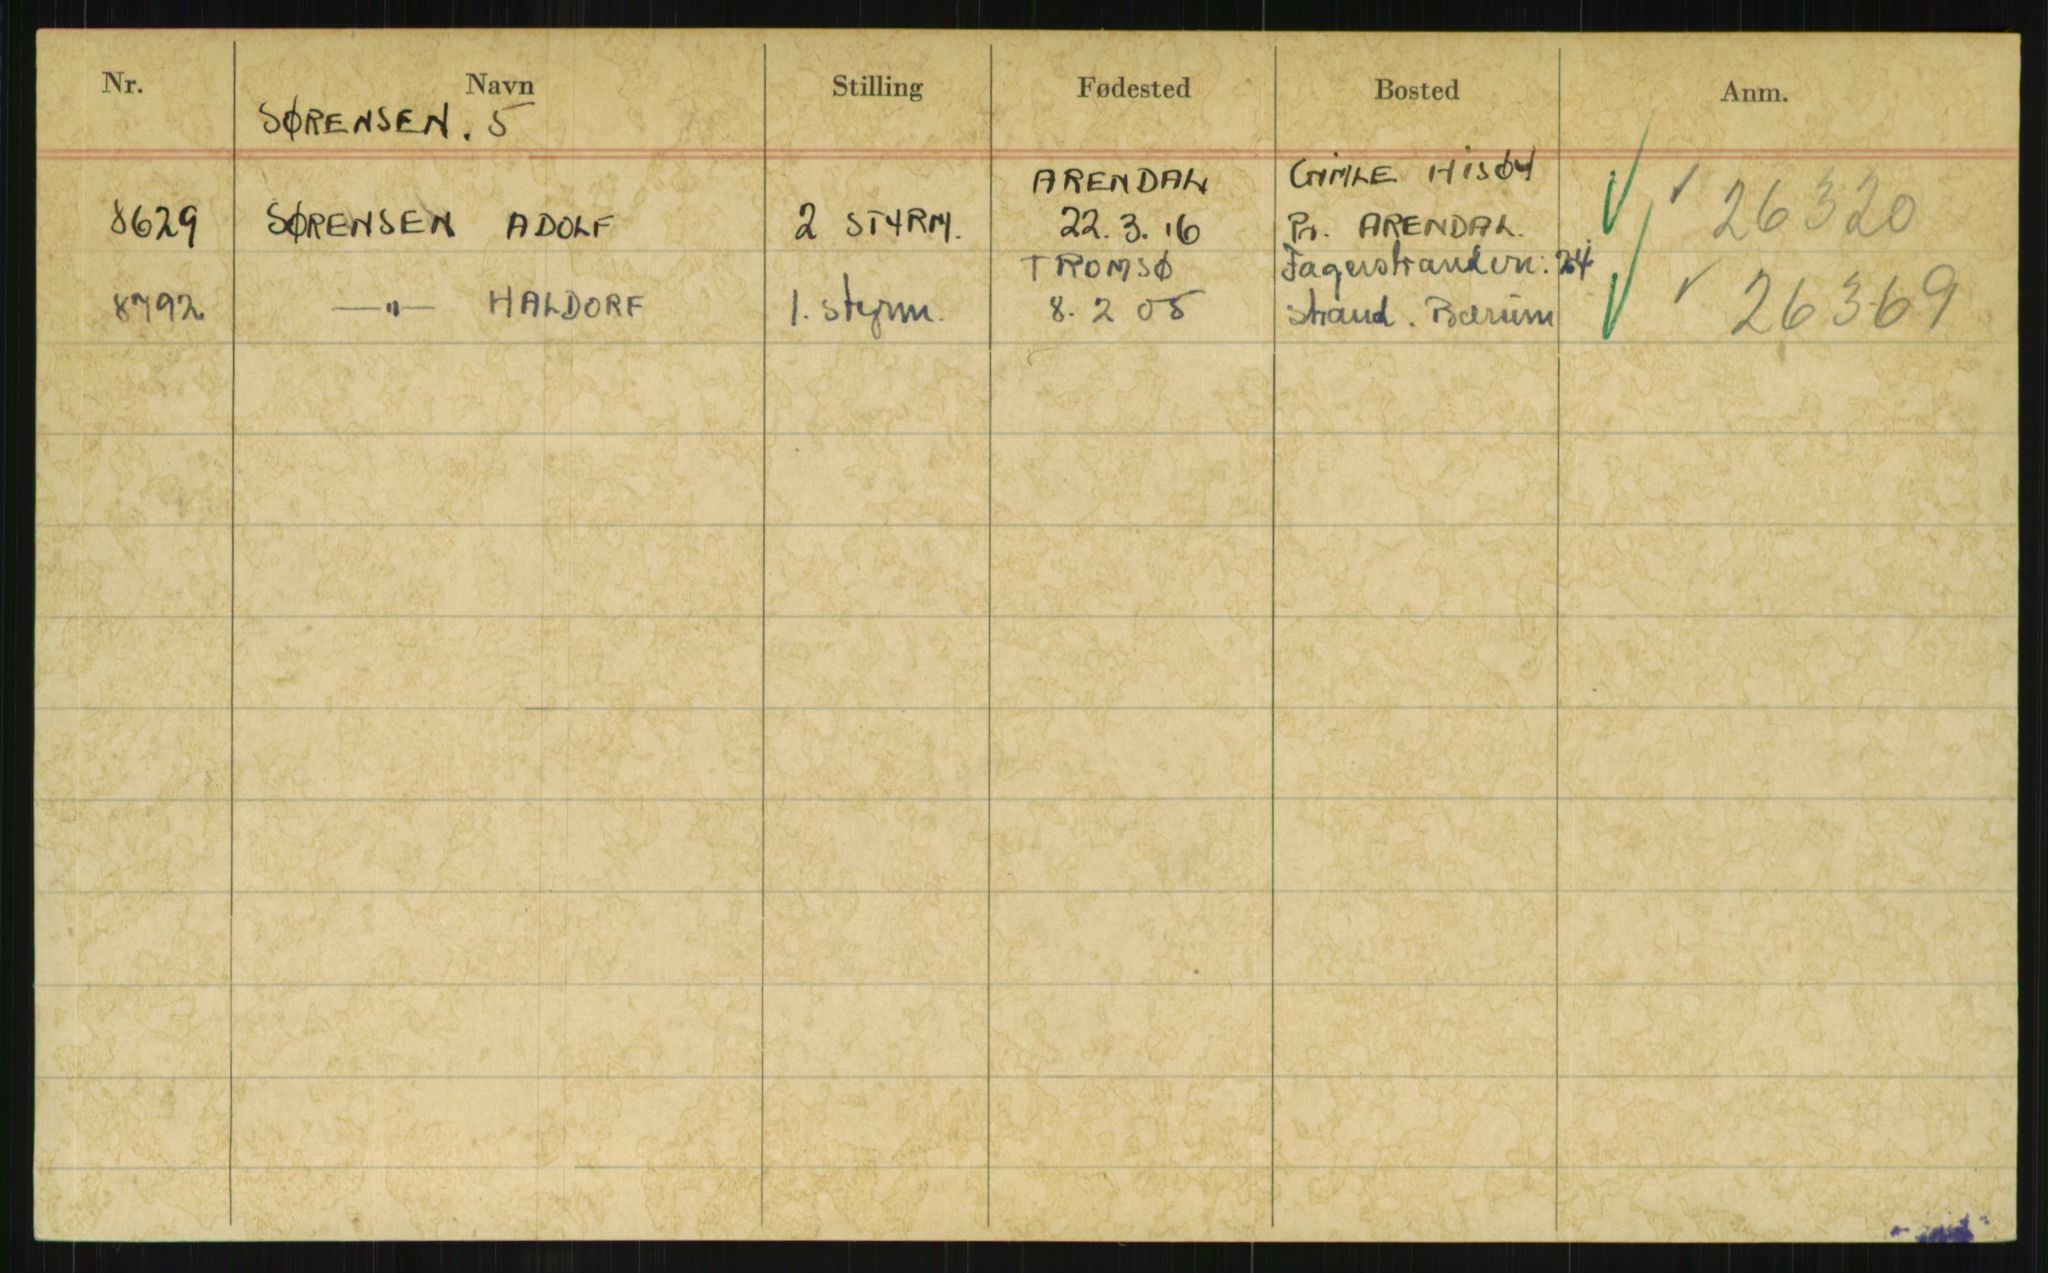 Nr. Navn Stilling Fødested Bosted Anm.
SØRENSEN. 5
ARENDAL GIMLE HISØY
8629 SØRENSEN ADOLF 2 STYRM. 22.3.16 Pr. ARENDAL. ✓ ✓ 26320
TROMSØ Fagerstrandvn. 24
8792 —"— HALDORF 1. styrm. 8. 2 05 strand. Bærum ✓ ✓ 26369